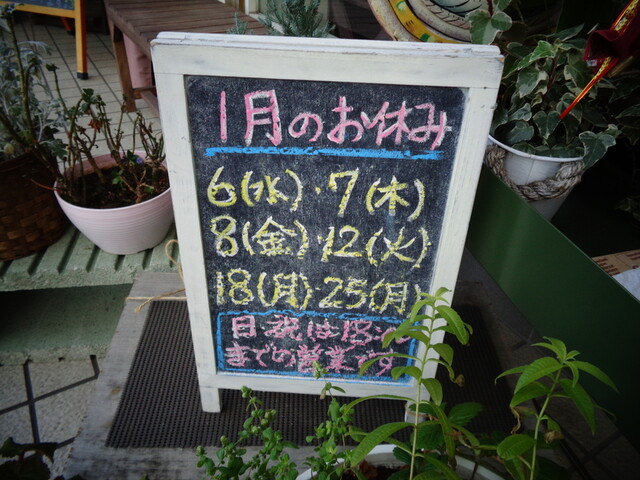 1月のお休み
6(水)・7(木)
8(金)・12(火)
18(月)25(月)
日祝は18:00
までの営業です